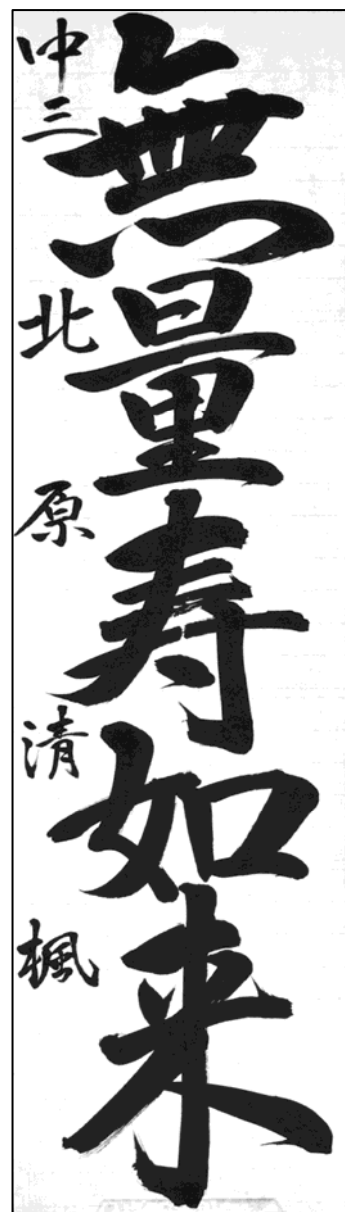 無量寿如来
中三 北原清楓